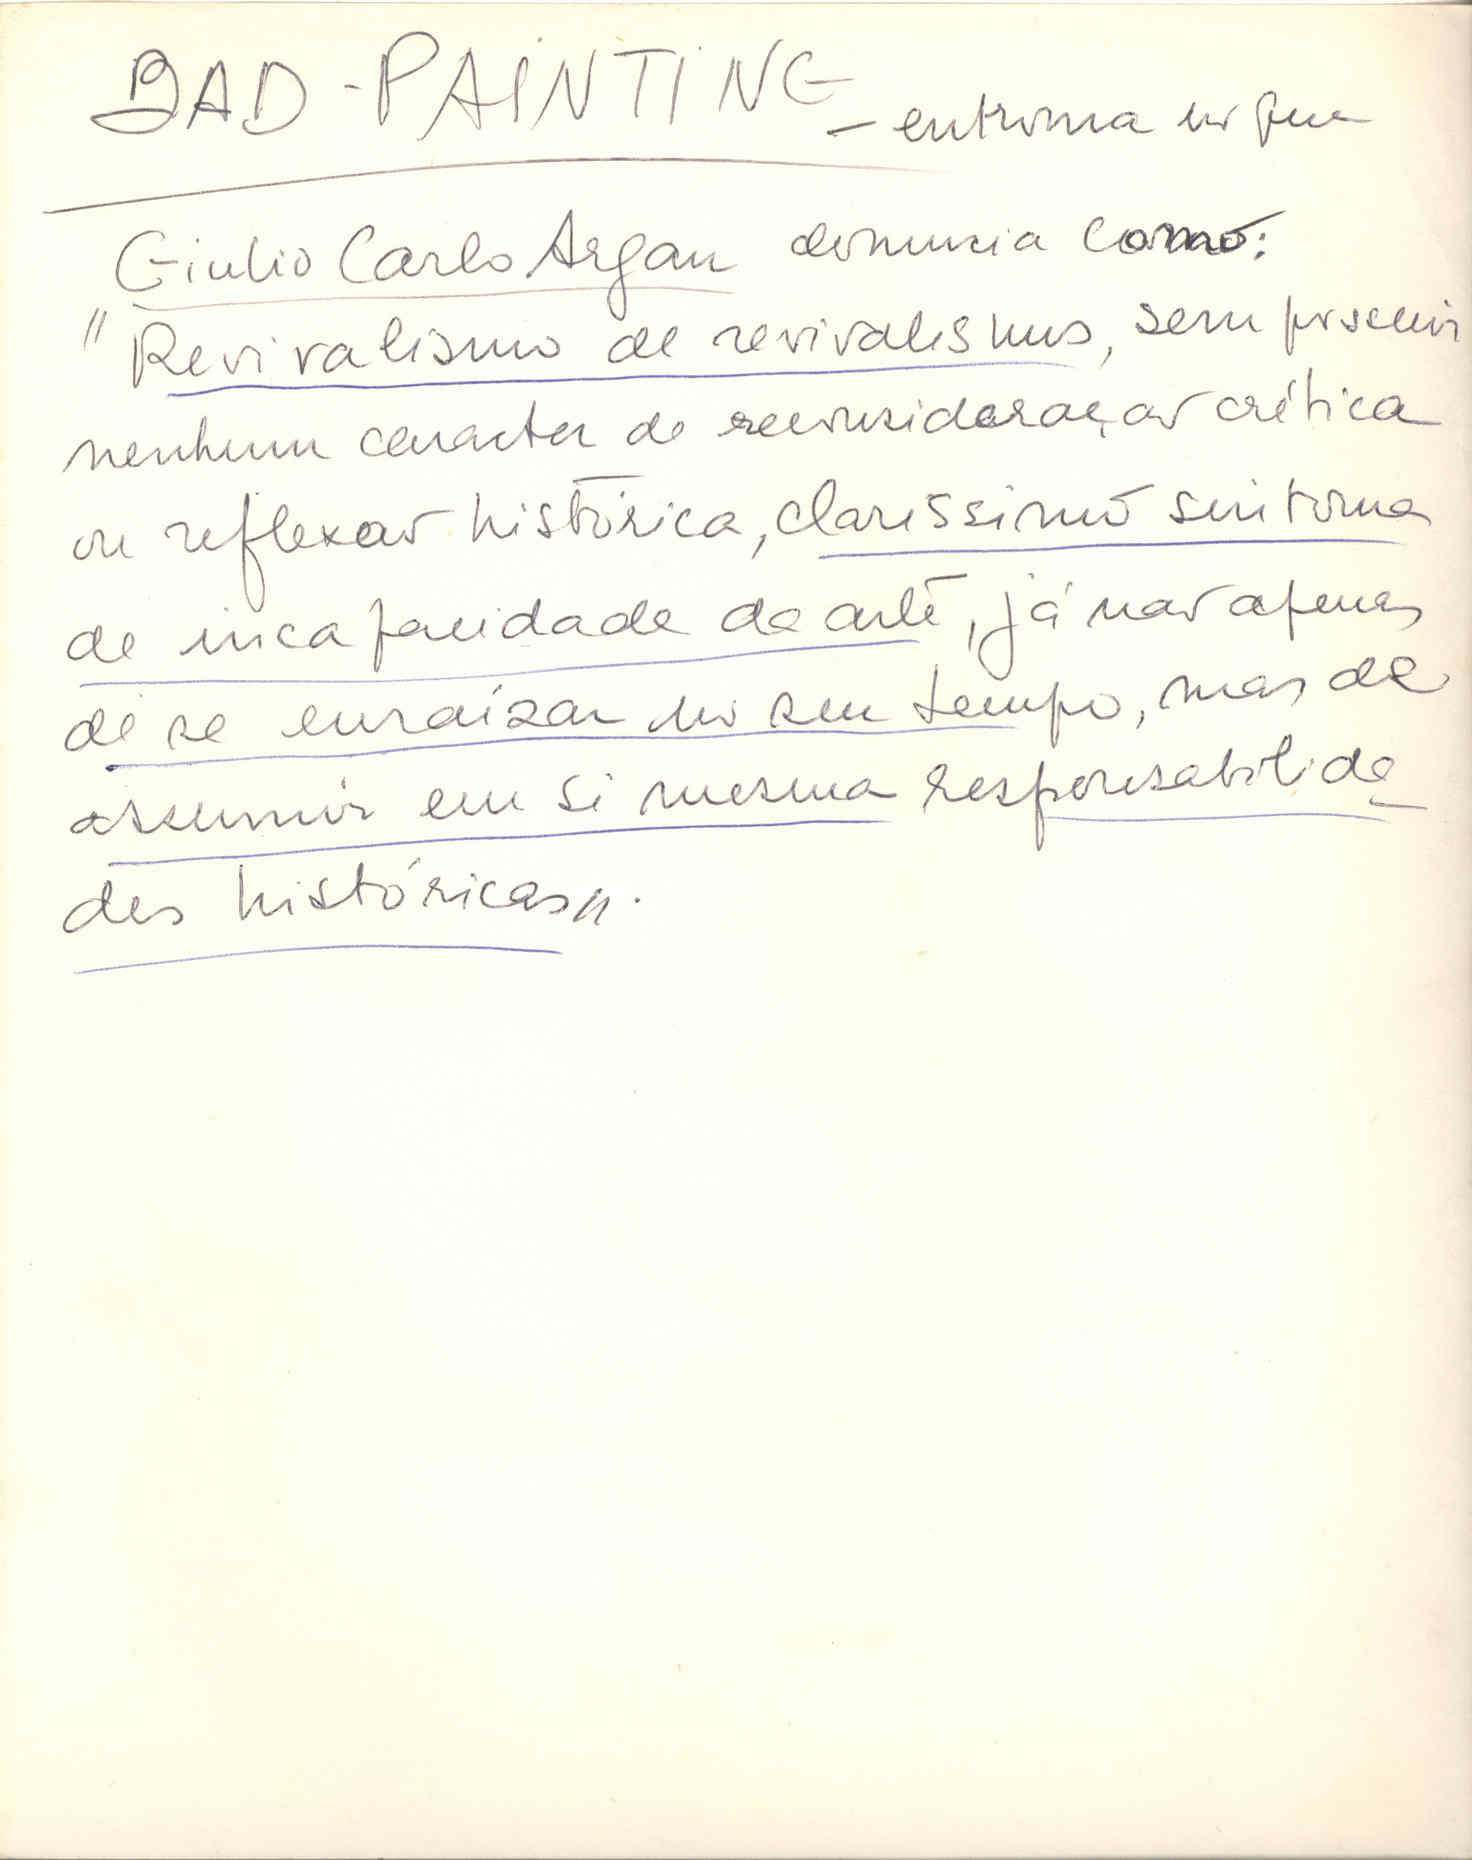 BAD-PAINTING - entronca no que
Giulio Carlo Argan denuncia como:
"Revivalismo de revivalismos, sem possuir
nenhum caracter de reconsideração crítica
ou reflexão histórica, claríssimo sintoma
de incapacidade da arte, já não apenas
de se enraízar no seu tempo, mas de
assumir em si mesma responsabilida
des históricas".